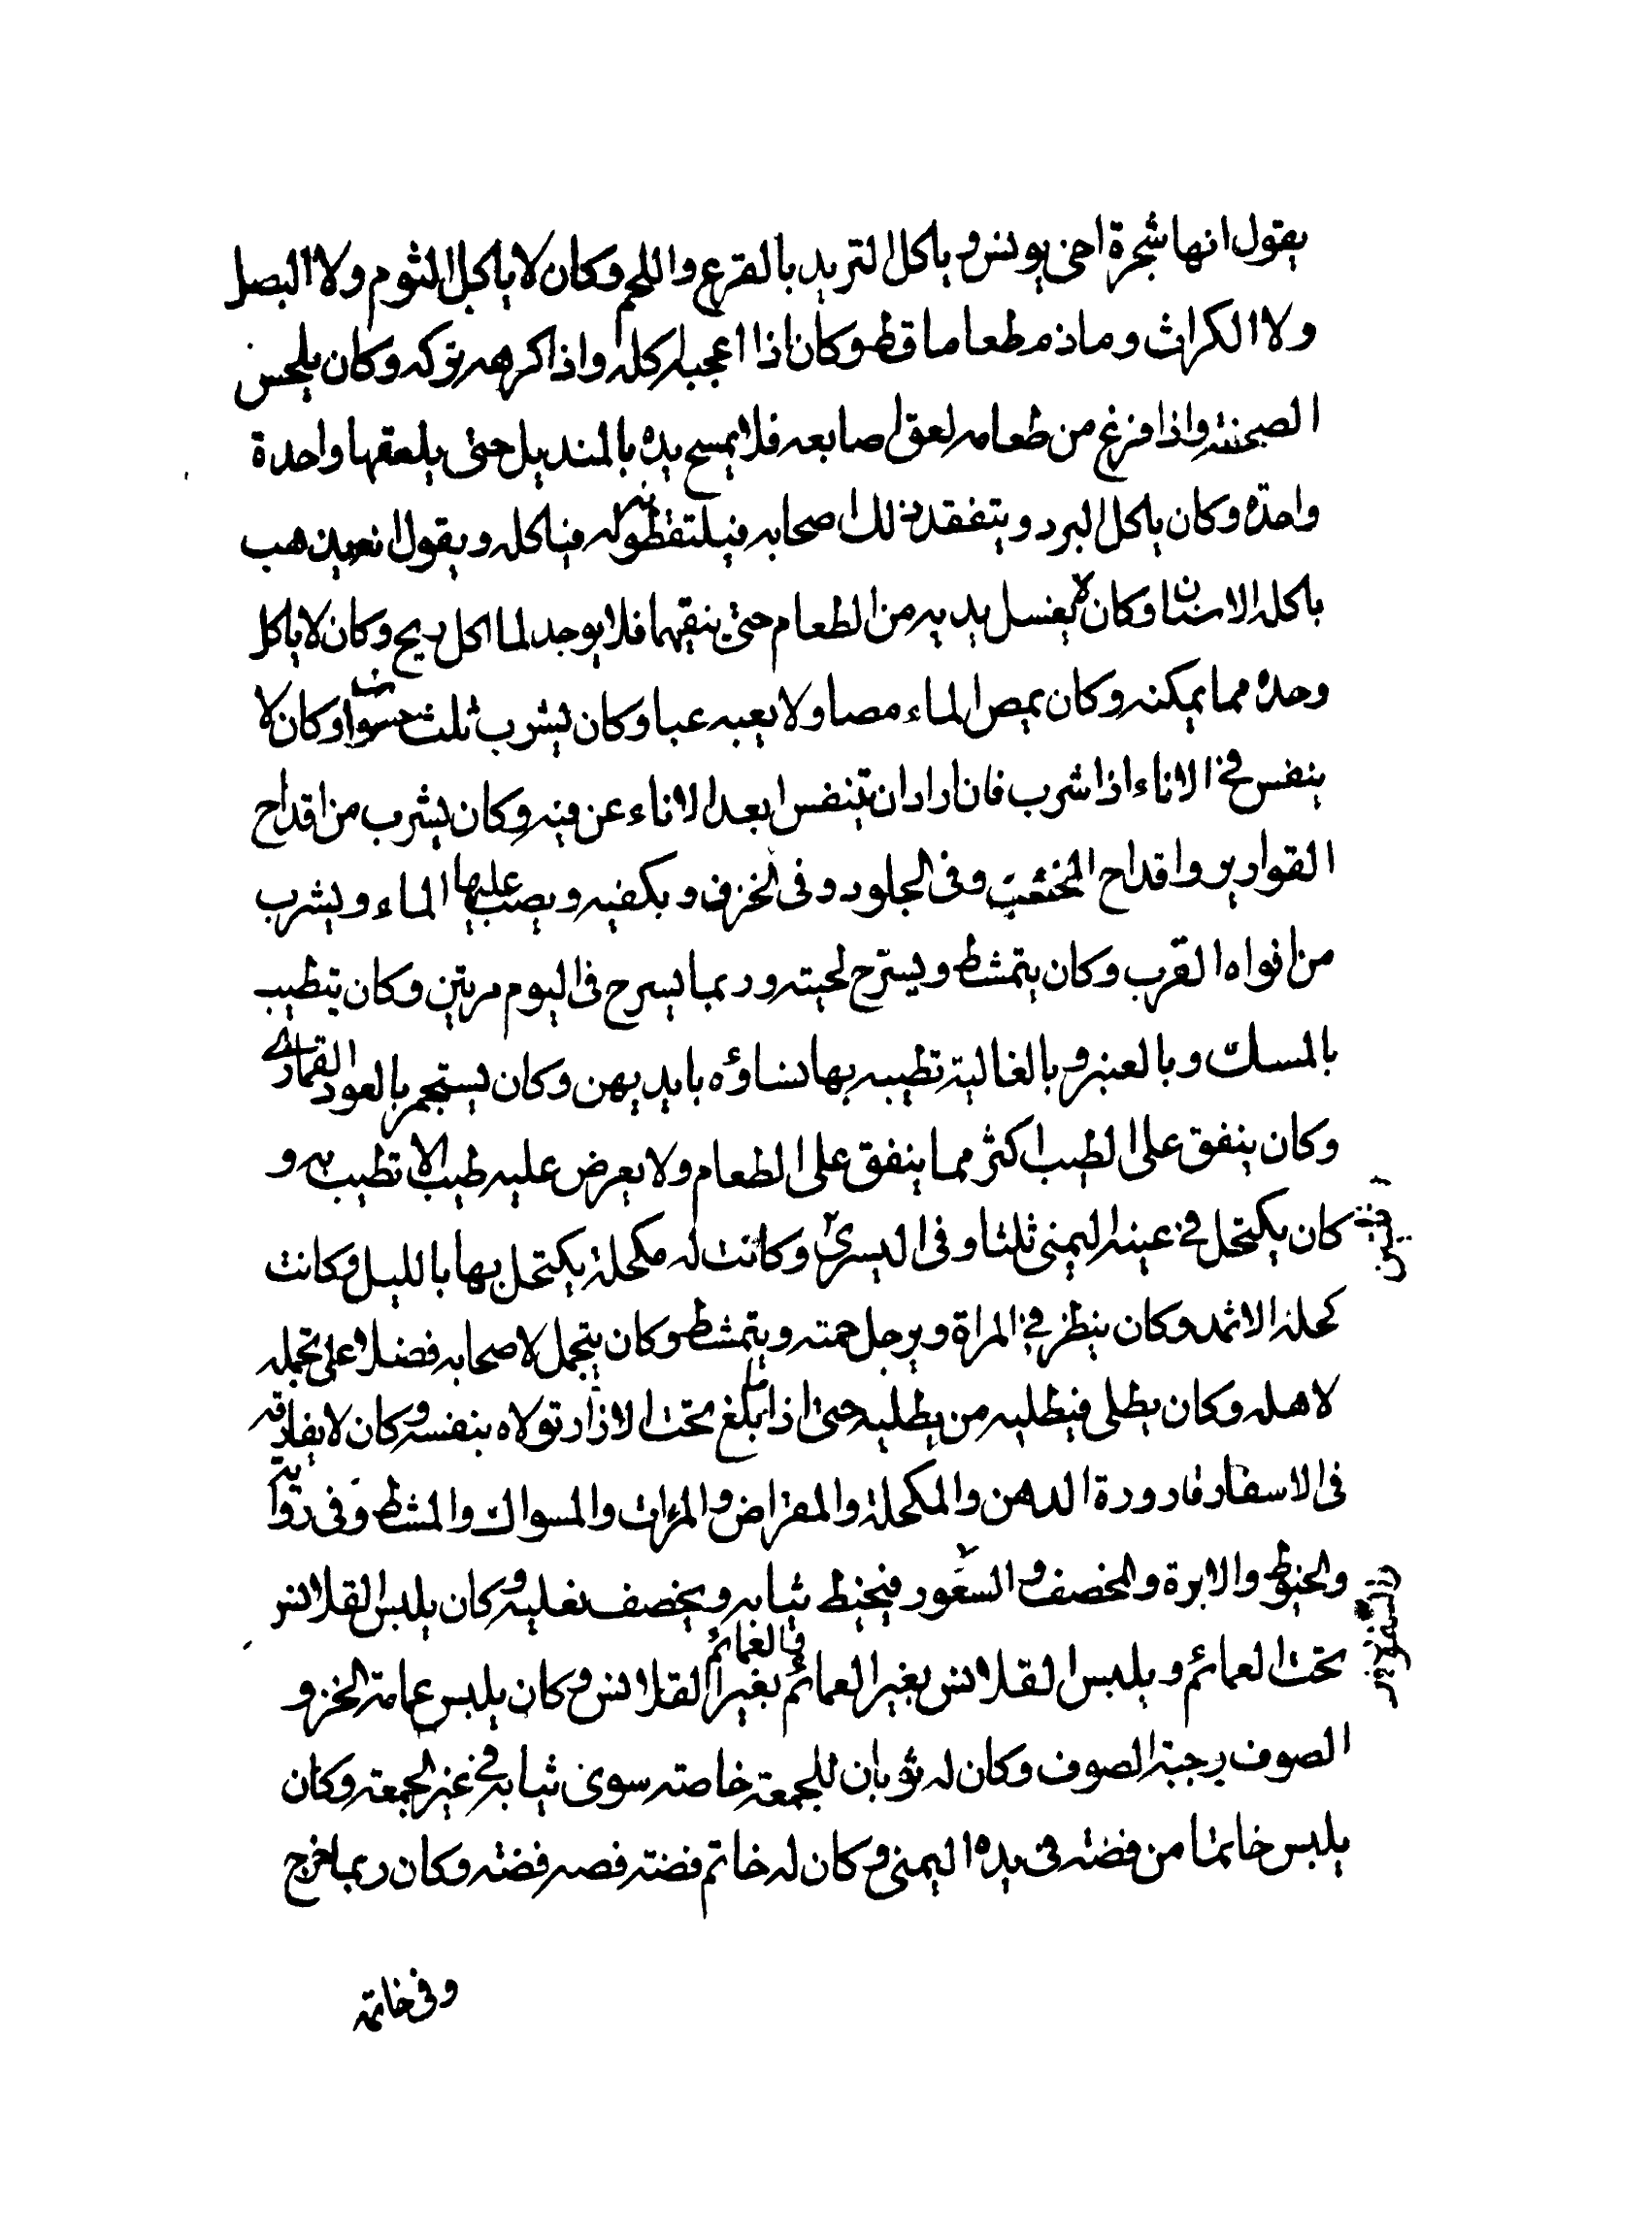 يقول انها شجرة اخى يونس و ياكل الثريد بالقرع واللحم وكان لا ياكل الثوم ولا البصل
ولا الكراث وما ذم طعاما قط وكان اذا اعجبه اكله واذا كرهه تركه وكان يلحس
الصحفة واذا فرغ من طعامه لعق اصابعه فلا يمسح يده بالمنديل حتى يلعقها واحدة
واحدة وكان ياكل البرد ويتفقد ذلك اصحابه فيلتقطونه له فياكله ويقول انه يذهب
باكلة الاسنان وكان يغسل يديه من الطعام حتى ينقيهما فلا يوجد لما اكل ريح وكان لا ياكل
وحده مما يمكنه وكان يمص الماء مصا ولا يعبه عبا وكان يشرب ثلث حسوات وكان لا
يتنفس فى الاناء اذا شرب فان اراد ان يتنفس ابعد الاناء عن فيه وكان يشرب من اقداح
القوارير واقداح الخشب وفى الجلود وفى الخزف و بكفيه و يصب عليها الماء ويشرب
من افواه القرب وكان يتمشط و يسرّح لحيته وربما يسرح فى اليوم مرتين وكان يتطيب
بالمسك و بالعنبر و بالغالية تطيبه بها نساؤه بايديهن وكان يستجمر بالعود القمارى
وكان ينفق على الطيب اكثر مما ينفق على الطعام ولا يعرض عليه طيب الا تطيب به و
كان يكتحل فى عينه اليمنى ثلثا وفى اليسرى وكانت له مكحلة يكتحل بها بالليل وكانت
اثنين
كحلة الاثمد وكان ينظر فى المراة و يرجل جمته ويتمشط وكان يتجمل لاصحابه فضلا على تجمله
لاهله وكان يطلى فيطليه من يطليه حتى اذا ما بلغ تحت الازار تولاه بنفسه و كان لا يفارقه
فى الاسفار قارورة الدهن والمكحلة والمقراض والمرات والمسواك والمشط وفى رواية
والخيوط والابرة والمخصف و السعور فيخيط ثيابه ويخصف نعليه و كان يلبس القلانس
تحت العمائم و يلبس القلانس بغير العمائم فى العمائم بغير القلانس و كان يلبس عمامة الخز و
الصوف وجبة الصوف وكان له ثوبان للجمعة خاصته سوى ثيابه فى غير الجمعة وكان
يلبس خاتما من فضته فى يده اليمنى و كان له خاتم فضته فصه فضته وكان ربما خرج
وفى خاتمه